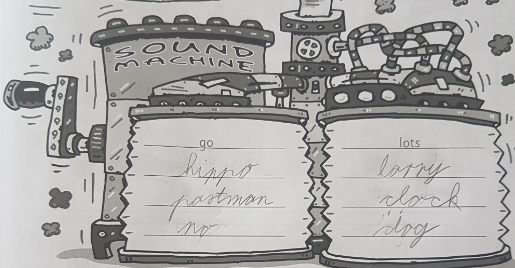 SOUND
MACHINE
go
hippo
postman
no
lots
lorry
clock
dog